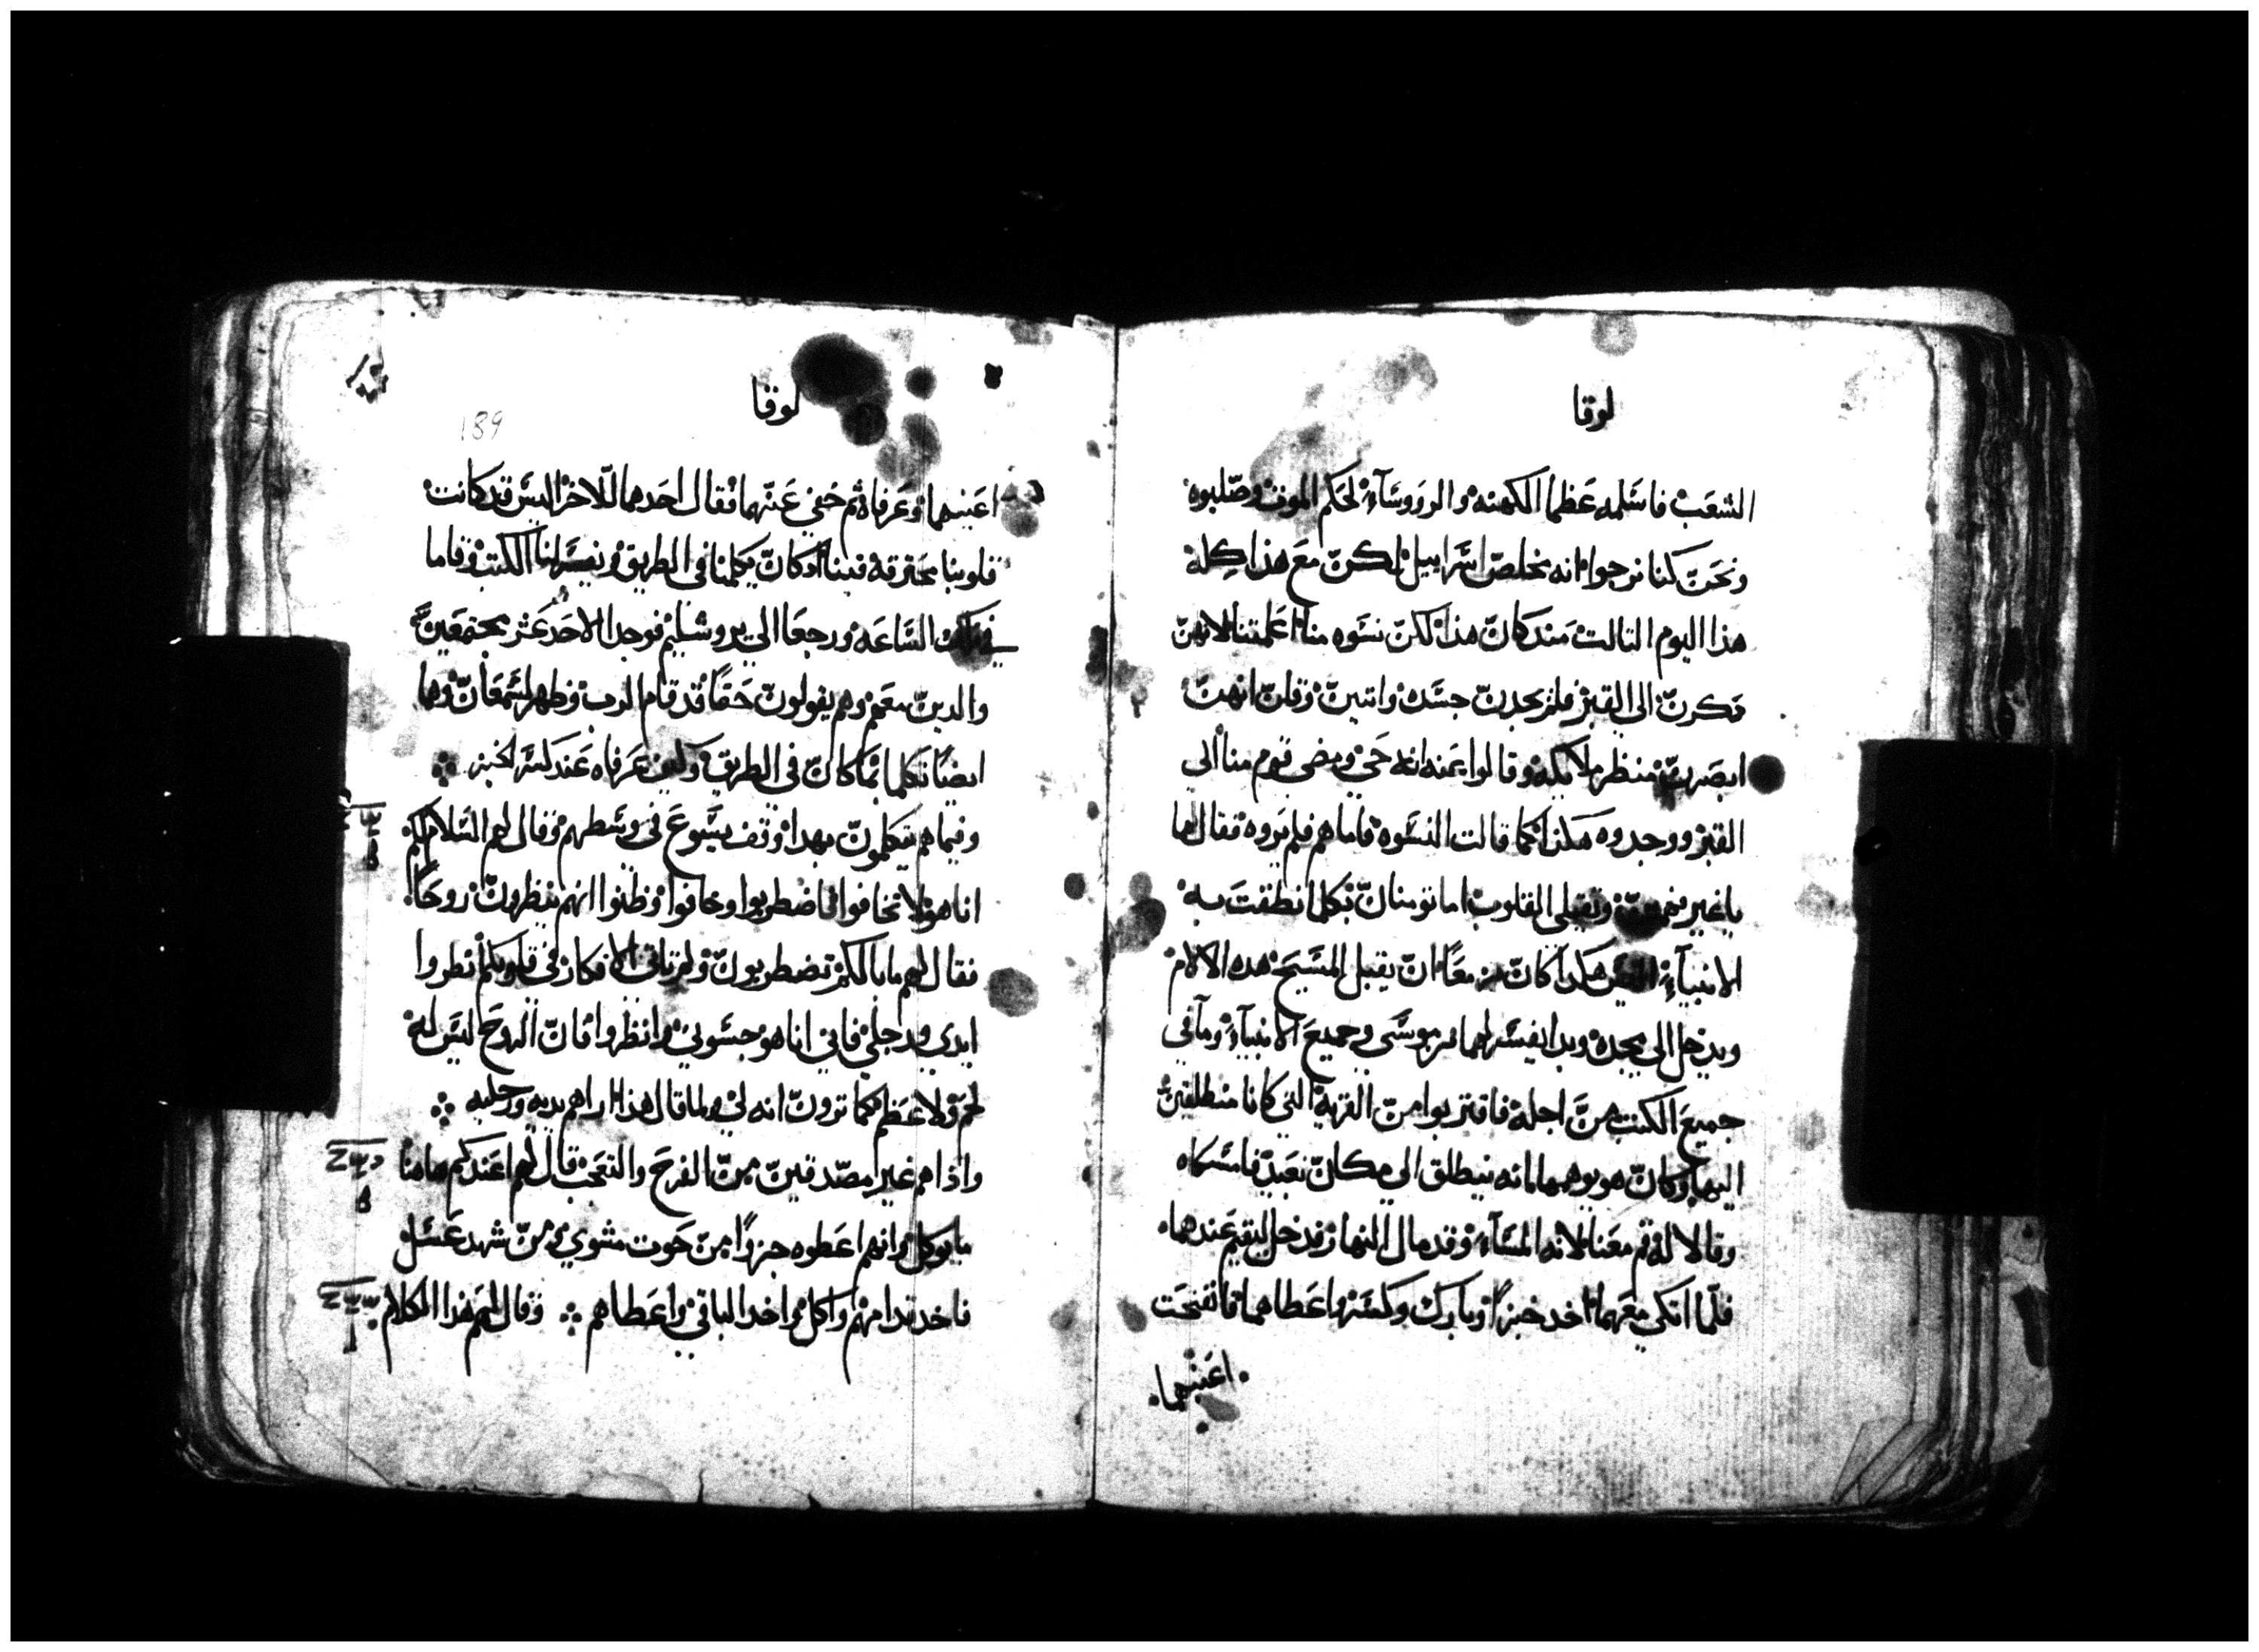 لوقا
الشعب فاسلمه عظما الكهنه والرووسآء لحكم الموت وصلبوه
ونحن كنا نرجوا انه يخلص اسراييل لكن مع هذا كله
هذا اليوم التالت مند كان هذا لكن نسوه منا اعلمتنا لانهن
بكرن الي القبر فلم يجدن جسده واتين وقلن انهن
ابصرن منظر ملايكه وقالوا عنه انه حي ومضي قوم منا الي
القبر ووجدوه هكذا كما قالت النسوه فاما هم فلم يروه فقال لهما
يا غير وتقيلي القلوب اما تومنان بكلما نطقت به
الانبيآء اليس هكدا كان مزمعا ان يقبل المسيح هده الالام
ويدخل الي مجده وبدا يفسر لهما من موسي وجميع الانبيآء وما في
جميع الكتب من اجله فاقتربوا من القريه التي كانا منطلقين
اليها وكان هو يوهمهما انه ينطلق الي مكان بعيد فامسكاه
وقالا له قم معنا لانه المسآء وقد مال النهار فدخل ليقيم عندهما
فلما اتكي معهما اخد خبزا وبارك وكسر واعطاهما فانفتحت
اعينهما
لوقا
189
اعينهما وعرفاه ثم خفي عنهما فقال احدهما للاخر اليس قد كانت
قلوبنا محترقه فينا اد كان يكلمنا في الطريق ويفسر لنا الكتب وقاما
في تلك الساعه ورجعا الي يروشليم فوجدا الاحد عشر مجتمعين
والدين معهم وهم يقولون حقا قد قام الرب وظهر لسمعان وهما
ايضا تكلما بما كان في الطريق وكيف عرفاه عند كسر الخبز
وفيما هم يتكلمون بهدا وقف يسوع في وسطهم وقال لهم السلام لكم
انا هو لا تخافوا فاضطربوا وخافوا وظنوا انهم ينظرون روحا
فقال لهم ما بالكم تضطربون ولم تاتي الافكار في قلوبكم انظروا
ايدي ورجلي فاني انا هو جسوني وانظروا فان الروح ليس له
لحم ولا عظم كما ترون انه لي ولما قال هذا اراهم يديه ورجليه
واذا هم غير مصدقين من الفرح والتعجب قال لهم اعندكم هاهنا
ما يوكل وانهم اعطوه جزا من حوت مشوي ومن شهد عسل
فاخد قدامهم واكل واخد الباقي واعطاهم وقال لهم هذا الكلام